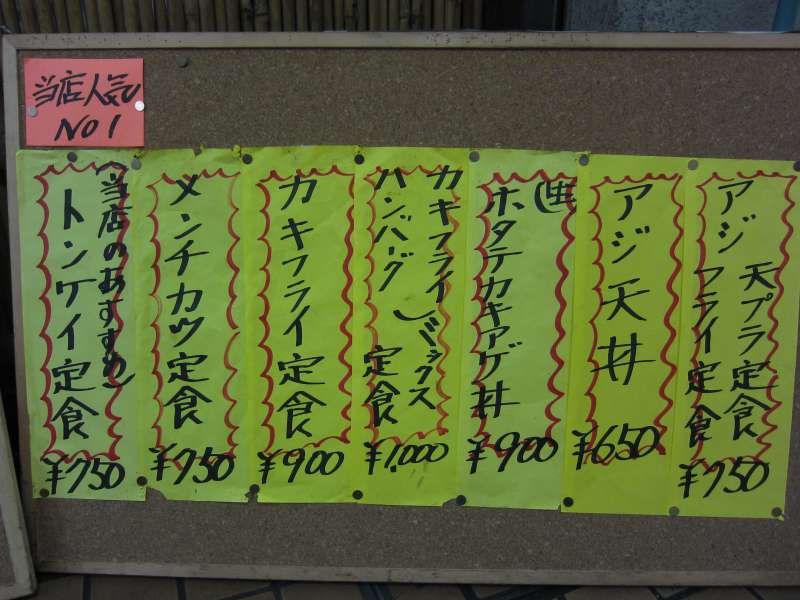 当店人気
NO1
アジ 天プラ定食
フライ定食
¥750
アジ天丼
¥650
ホタテカキアゲ丼
¥900
カキフライ
ハンバーグ ミックス
定食
¥1,000
カキフライ定食
¥900
メンチカツ定食
¥750
(当店のおすすめ)
トンケイ定食
¥750